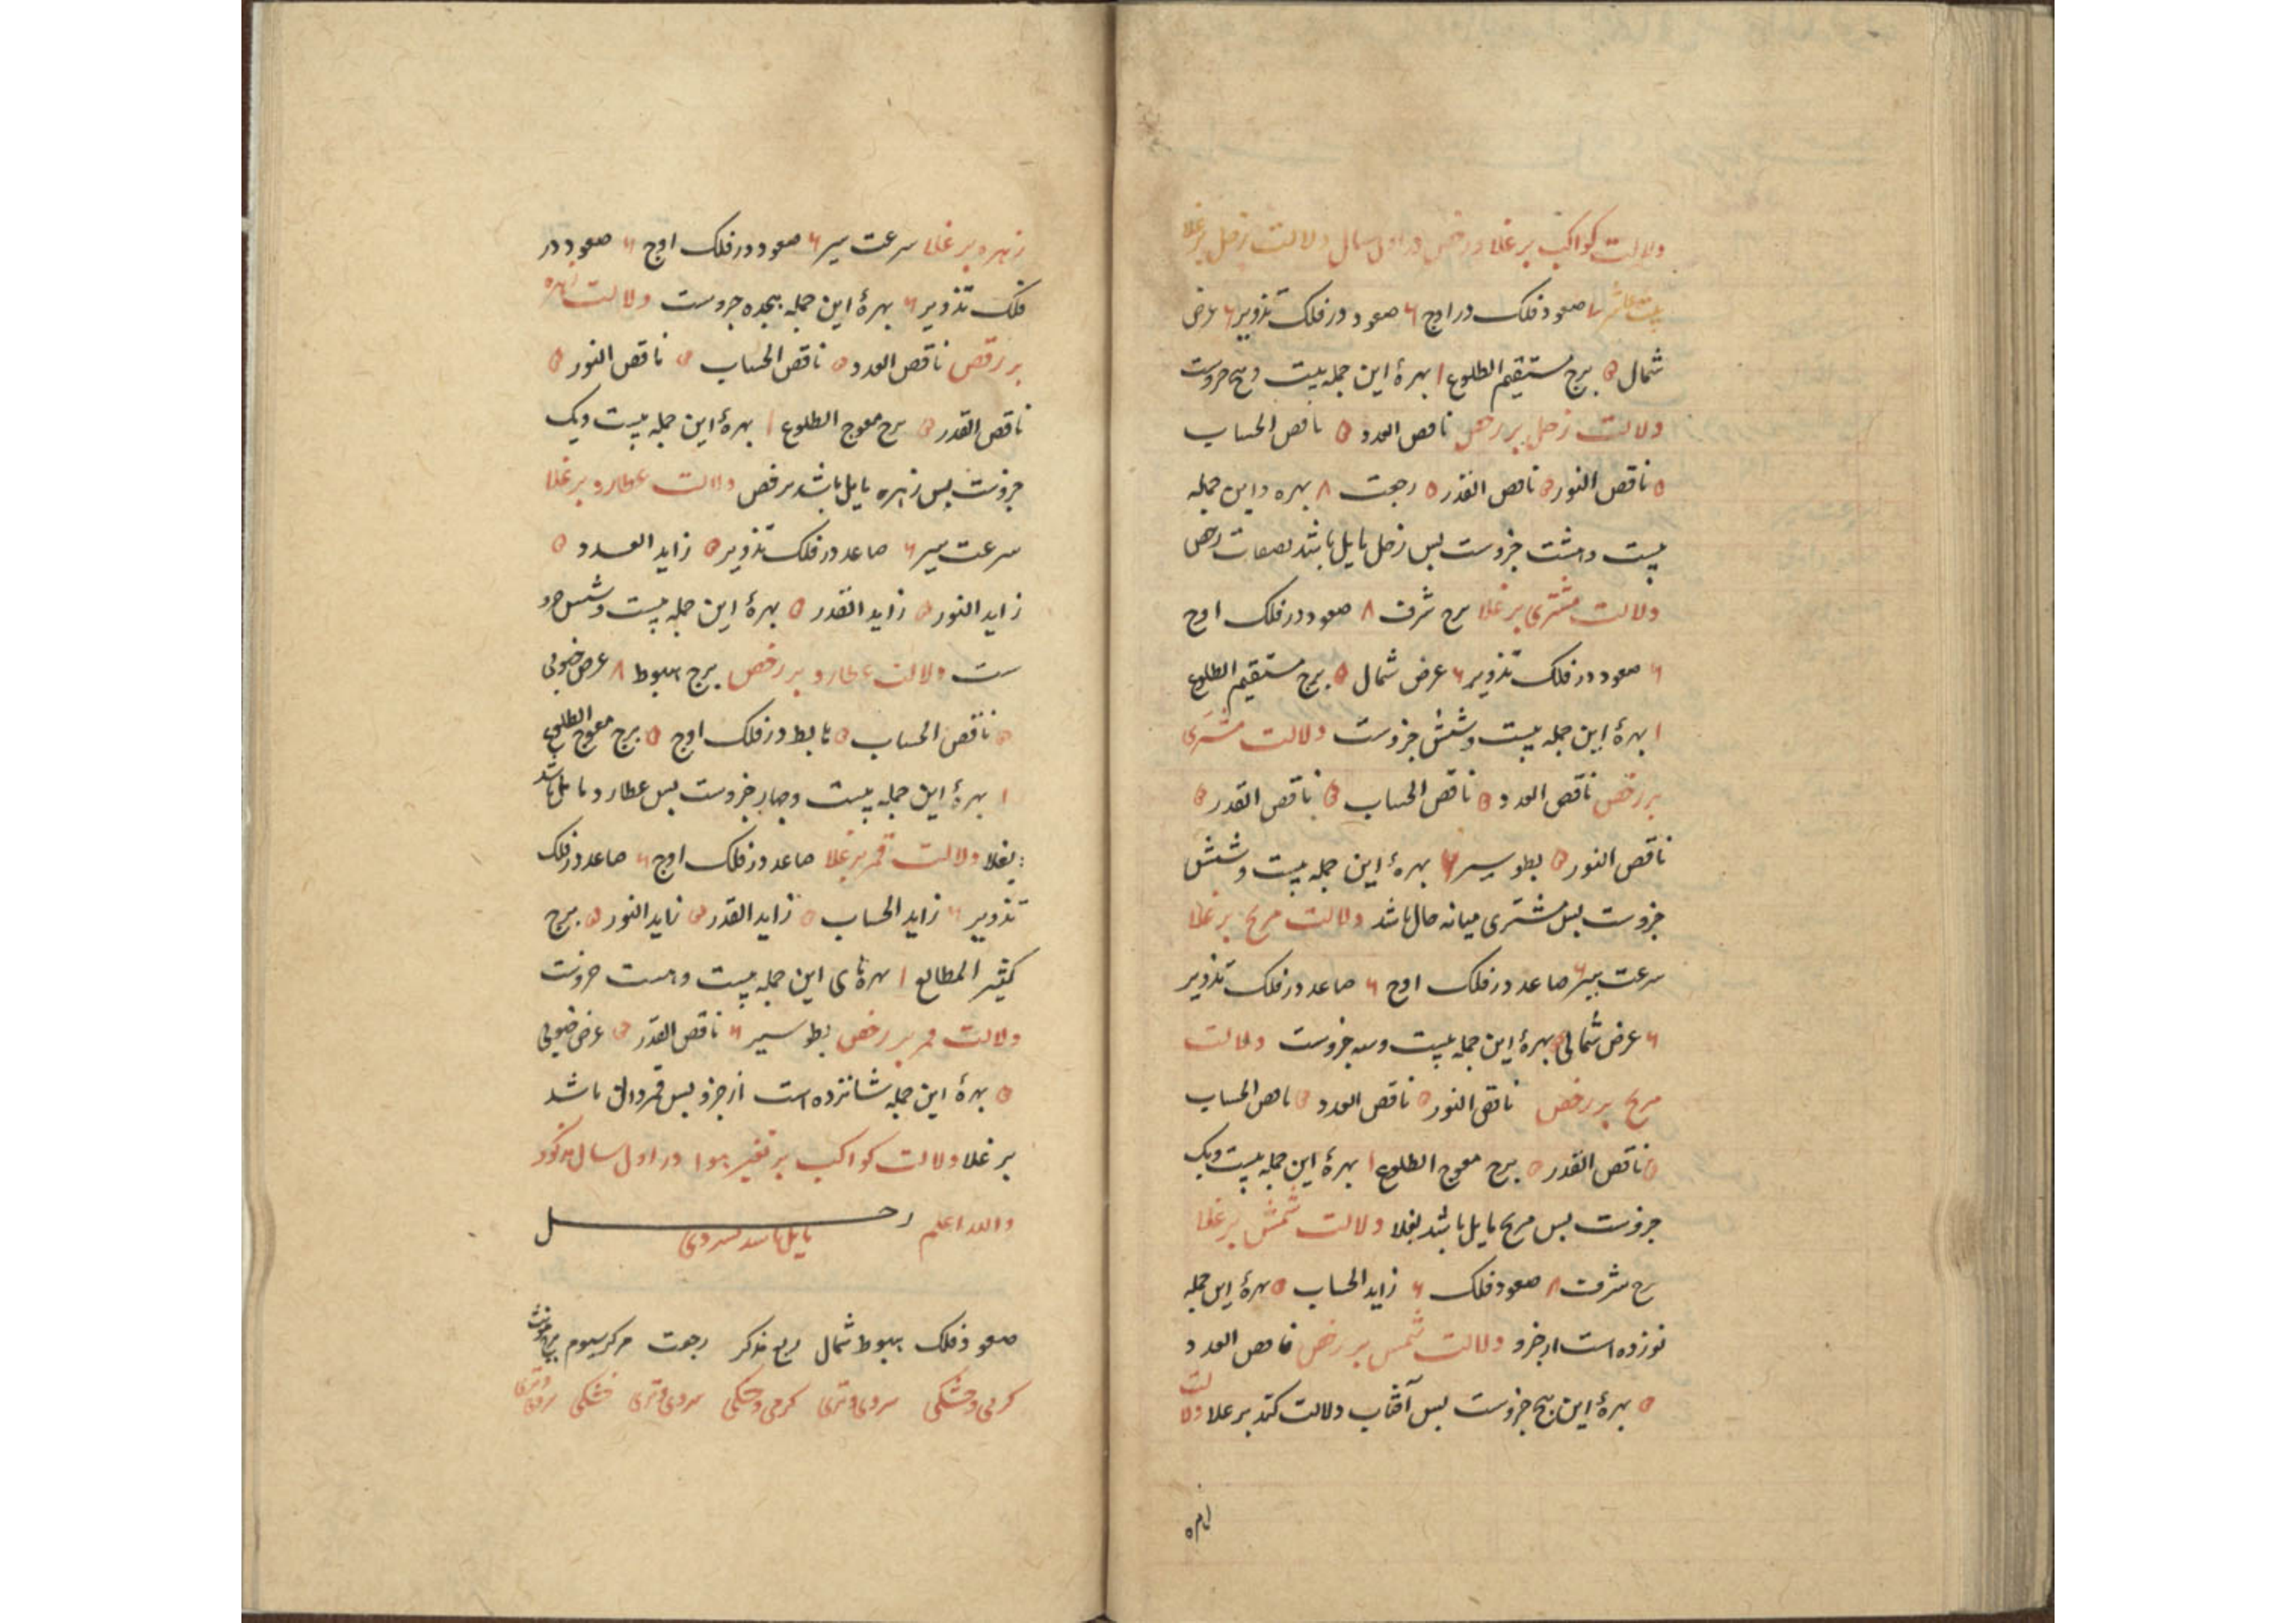 ولالت کواکب بر غلا و رخص در اول سال ولالت زحل بر غلا
صعود فلک در اوج ۶ صعود در فلک تذویر ۶ عرض
شمال ۵ برج مستقیم الطلوع ۱ بهرهٔ این جمله بیست و پنج جزوست
ولالت زحل بر رخص ناقص العدد ۵ ناقص الحساب
۵ ناقص النور ۵ ناقص القدر ۵ رجعت ۸ بهره و این جمله
بیست و هشت جزوست بس زحل مایل باشد بصفات رخص
ولالت مشتری بر غلا برج شرف ۸ صعود در فلک اوج
۶ صعود در فلک تذویر ۶ عرض شمال ۵ برج مستقیم الطلوع
۱ بهرهٔ این جمله بیست و شش جزوست ولالت مشتری
بر رخص ناقص العدد ۵ ناقص الحساب ۵ ناقص القدر ۵
ناقص النور ۵ بطو سیر ۶ بهرهٔ این جمله بیست و شش
جزوست بس مشتری میانه حال باشد ولالت مریخ بر غلا
سرعت سیر ۶ صاعد در فلک اوج ۶ صاعد در فلک تذویر
۶ عرض شمالی ۵ بهرهٔ این جمله بیست و سه جزوست ولالت
مریخ بر رخص ناقص النور ۵ ناقص العدد ۵ ناقص الحساب
۵ ناقص القدر ۵ برج معوج الطلوع ۱ بهرهٔ این جمله بیست و یک
جزوست بس مریخ مایل باشد بغلا ولالت شمس بر غلا
برج شرف ۸ صعود فلک ۶ زاید الحساب ۵ بهرهٔ این جمله
نوزده است از جزو ولالت شمس بر رخص ناقص العدد
۵ بهرهٔ این پنج جزوست بس آفتاب دلالت کند بر غلا ولالت
زهره بر غلا سرعت سیر ۶ صعود در فلک اوج ۶ صعود در
فلک تذویر ۶ بهرهٔ این جمله هجده جزوست ولالت زهره
بر رخص ناقص العدد ۵ ناقص الحساب ۵ ناقص النور ۵
ناقص القدر ۵ برج معوج الطلوع ۱ بهرهٔ این جمله بیست و یک
جزوست بس زهره مایل باشد برخص ولالت عطارد بر غلا
سرعت سیر ۶ صاعد در فلک تذویر ۵ زاید العدد ۵
زاید النور ۵ زاید القدر ۵ بهرهٔ این جمله بیست و شش جزو
ست ولالت عطارد بر رخص برج هبوط ۸ عرض جنوبی
۵ ناقص الحساب ۵ هابط در فلک اوج ۵ برج معوج الطلوع
۱ بهرهٔ این جمله بیست و چهار جزوست بس عطارد مایل باشد
بغلا ولالت قمر بر غلا صاعد در فلک اوج ۶ صاعد در فلک
تذویر ۶ زاید الحساب ۵ زاید القدر ۵ زاید النور ۵ برج
کثیر المطالع ۱ بهرهای این جمله بیست و هست جزوست
ولالت قمر بر رخص بطو سیر ۶ ناقص القدر ۵ عرض جنوبی
۵ بهرهٔ این جمله شانزده است از جزو بس قمر دال باشد
بر غلا ولالت کواکب بر تغیر هوا در اول سال مذکور
والله اعلم زحل مایل باشد بسردی
صعود فلک هبوط شمال ربع مذکر رجعت مرکز سیوم برج مونث
گرمی و خشکی سردی و تری گرمی و خشکی سردی و تری خشکی سردی و تری